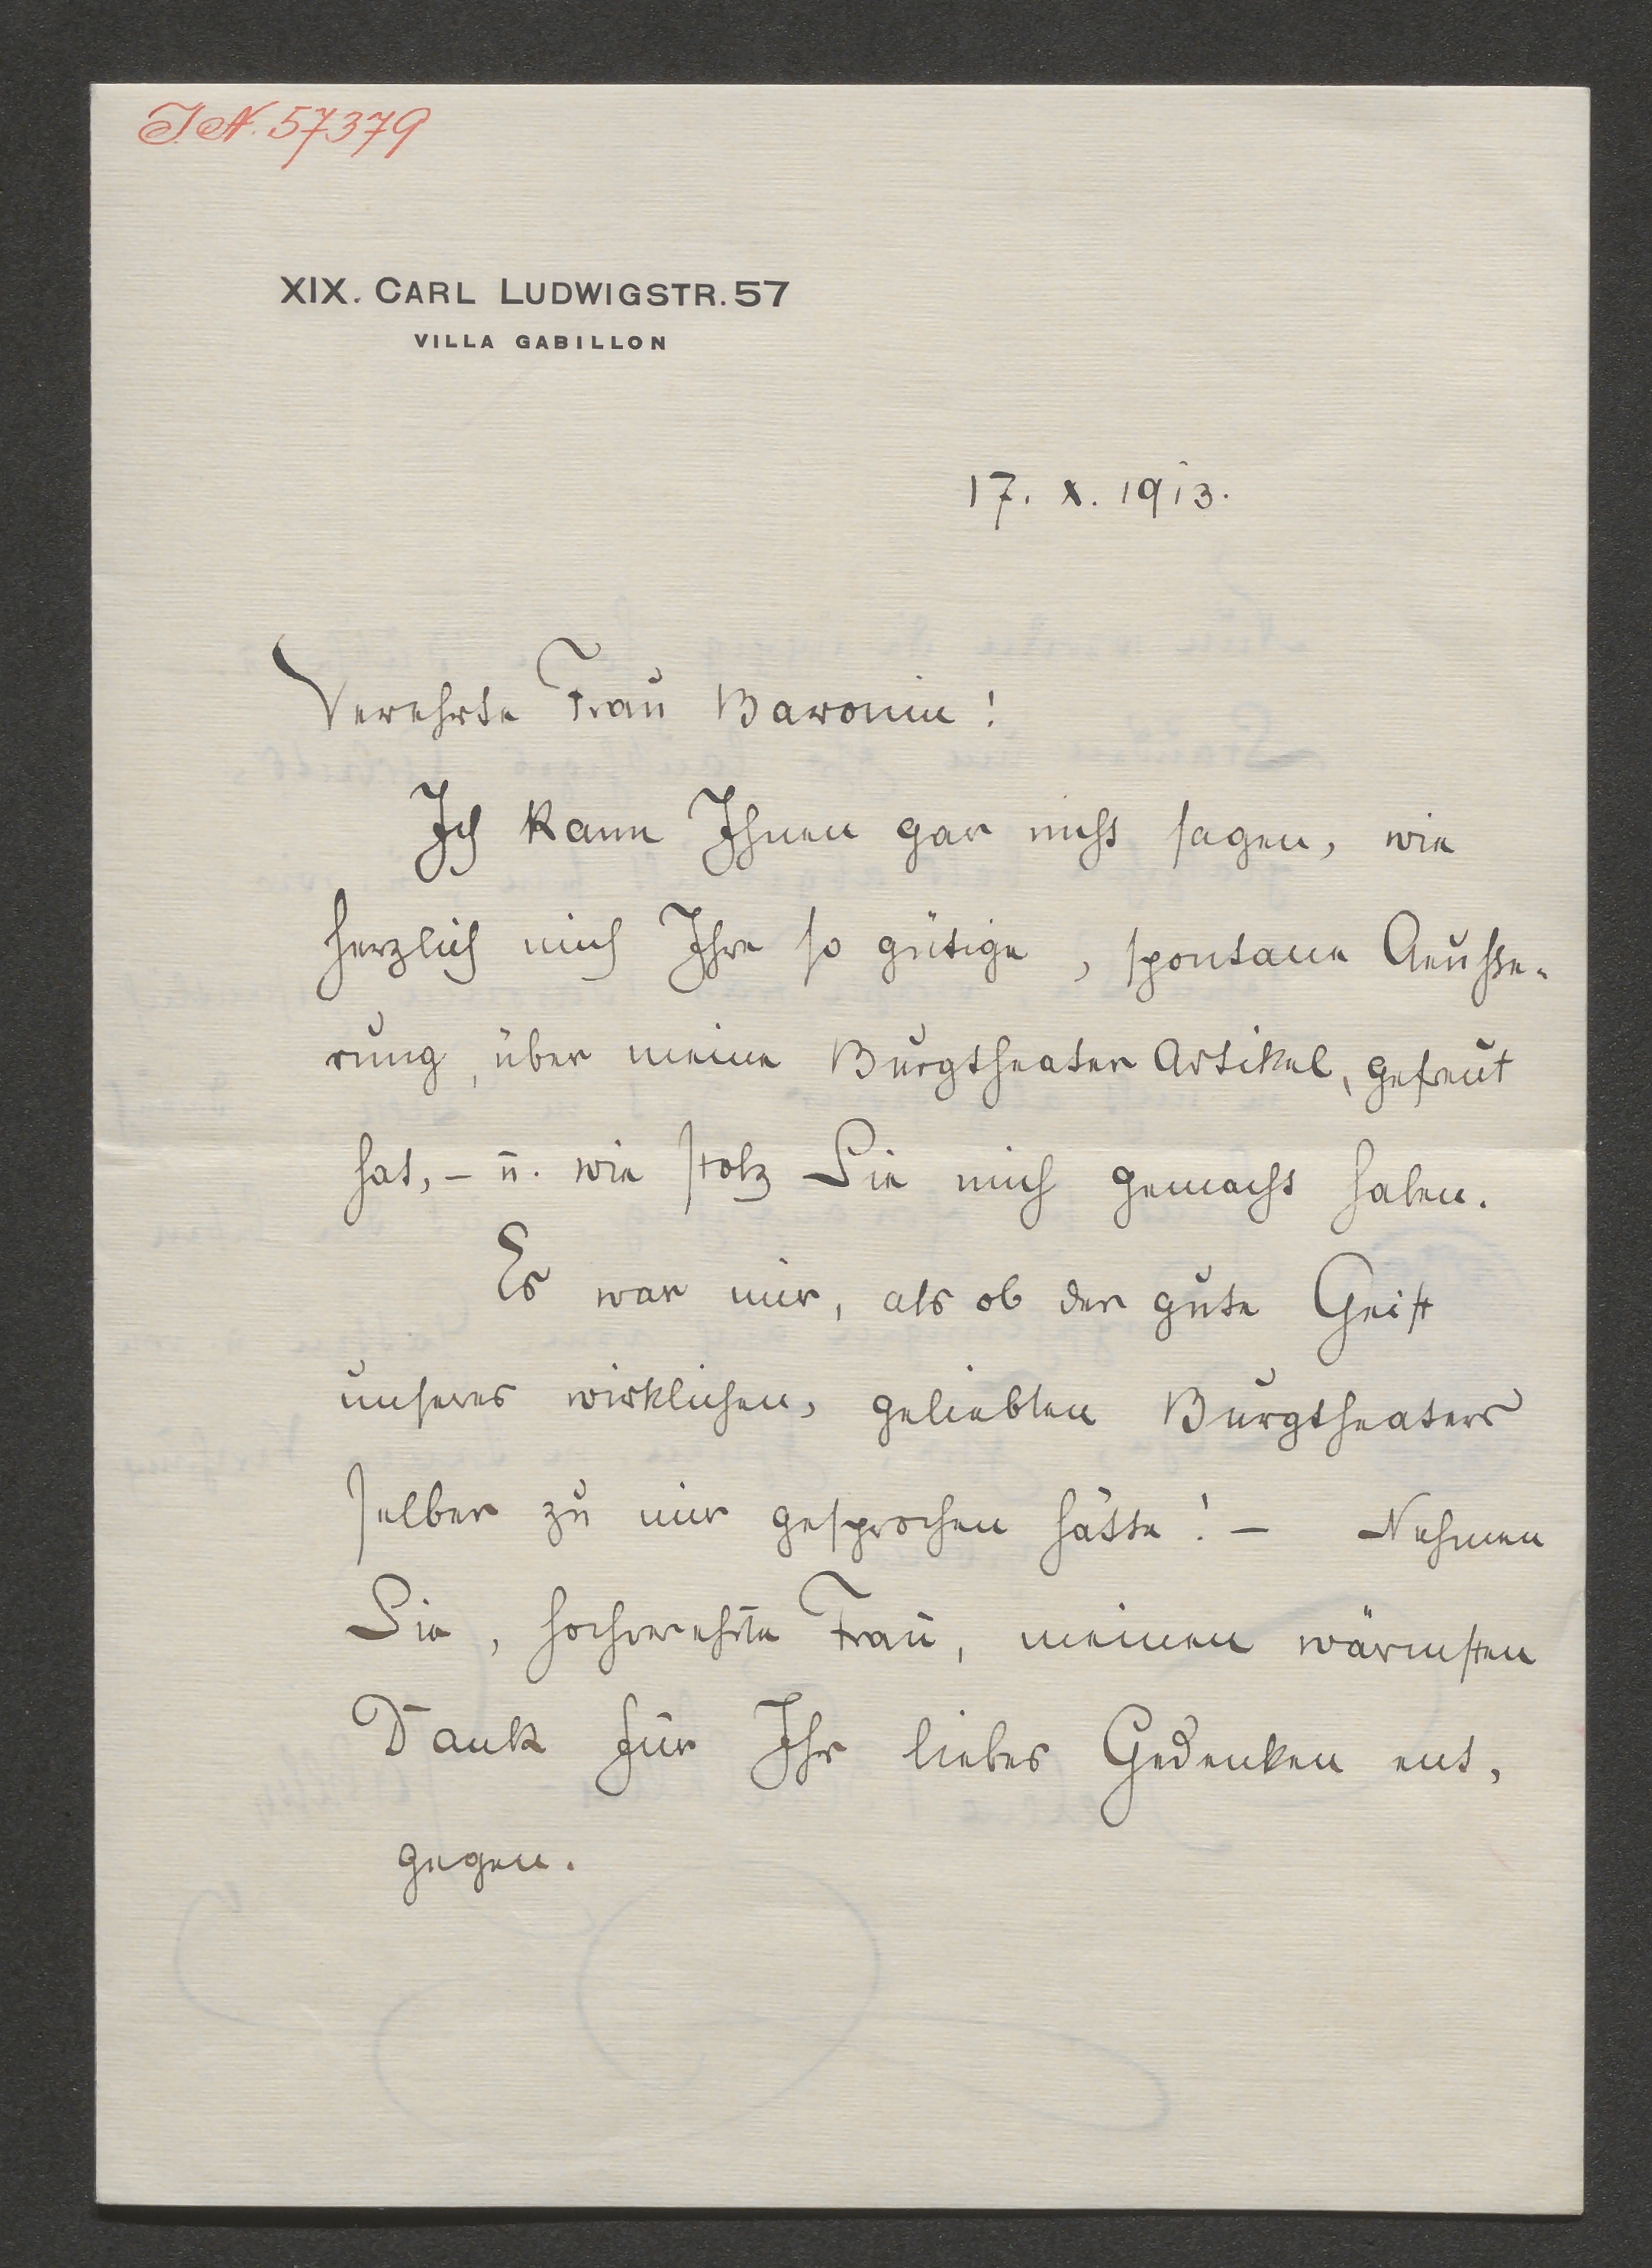 J.N. 57379
XIX. CARL LUDWIGSTR. 57
VILLA GABILLON
17. X. 1913.
Verehrte Frau Baronin!
Ich kann Ihnen gar nicht sagen, wie
herzlich mich Ihre so gütige, spontane Aeusse-
rung, über meine Burgtheater Artikel, gefreut
hat, – u. wie stolz Sie mich gemacht haben.
Es war mir, als ob der gute Geist
unseres wirklichen, geliebten Burgtheaters
selber zu mir gesprochen hätte! – Nehmen
Sie, hochverehrte Frau, meinen wärmsten
Dank für Ihr liebes Gedenken ent-
gegen.